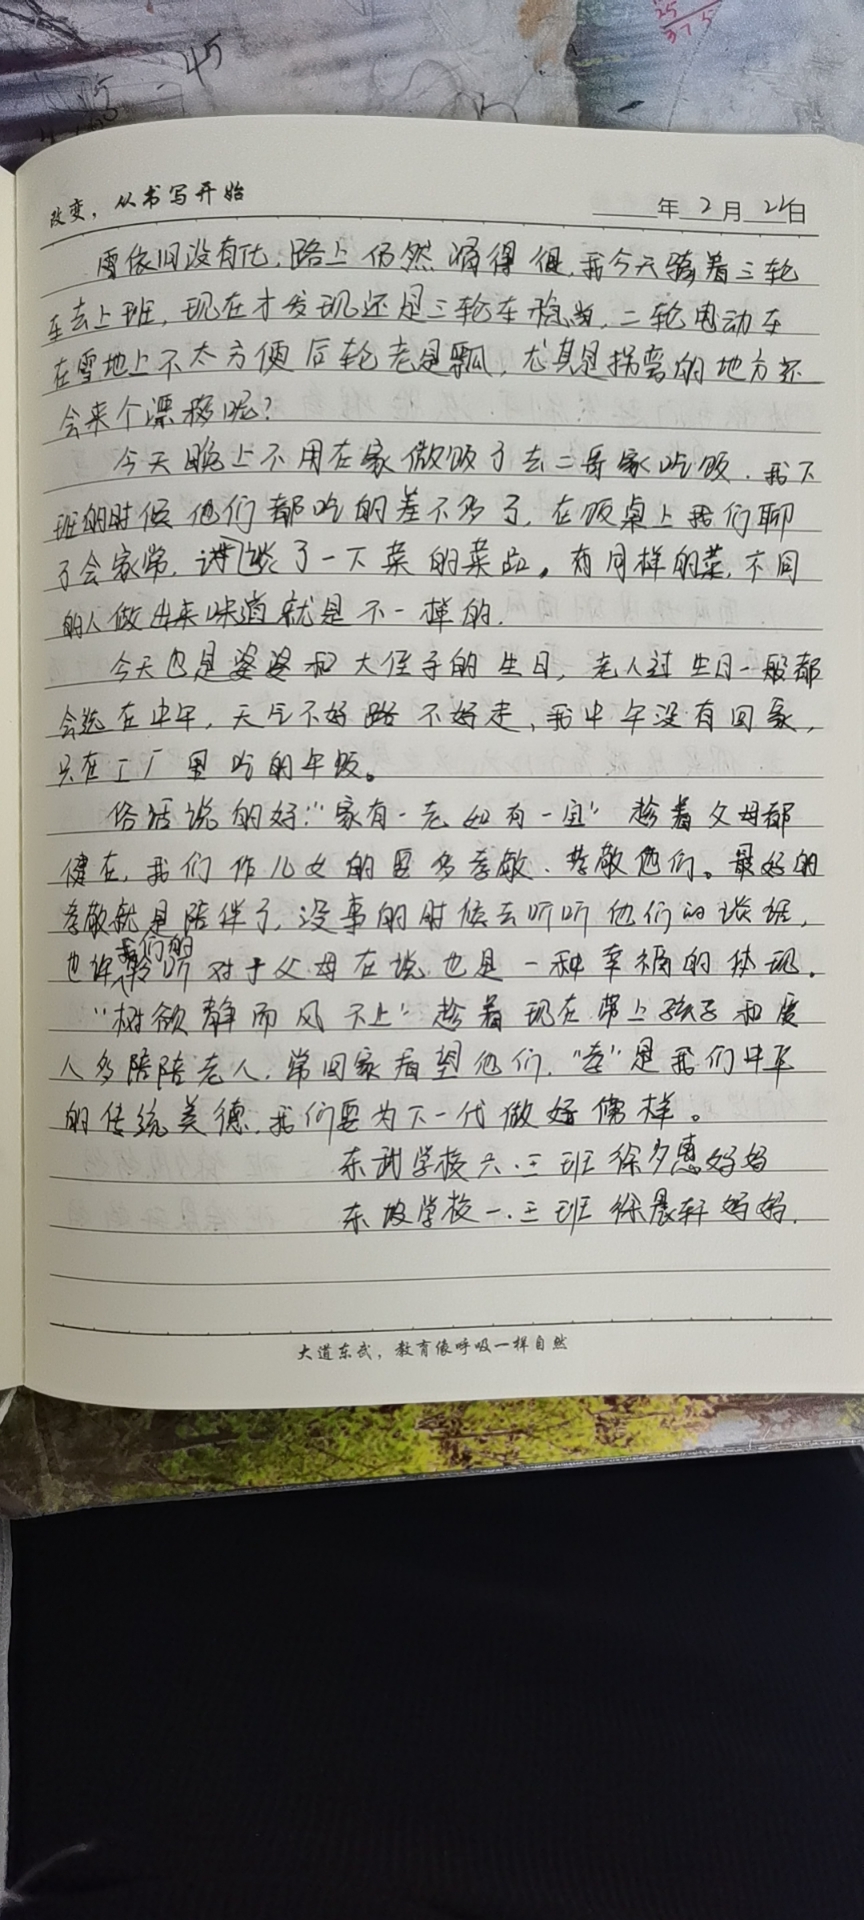 45
25
375
改变，从书写开始
年 2 月 22日
雪依旧没有化，路上仍然滑得很，我今天骑着三轮
车去上班，现在才发现还是三轮车稳当，二轮电动车
在雪地上不太方便后轮老是飘，尤其是拐弯的地方还
会来个漂移呢？
今天晚上不用在家做饭了去二哥家吃饭．我下
班的时候他们都吃的差不多了，在饭桌上我们聊
了会家常，讨论了一下菜的菜品。有同样的菜，不同
的人做出来味道就是不一样的．
今天也是婆婆和大侄子的生日，老人过生日一般都
会选在中午，天气不好路不好走，我中午没有回家，
只在工厂里吃的午饭。
俗话说的好："家有一老如有一宜"趁着父母都
健在，我们作儿女的要多孝敬、孝敬他们。最好的
孝敬就是陪伴了，没事的时候去听听他们的谈话，
也许我们的聆听对于父母在说也是一种幸福的体现．
"树欲静而风不止"趁着现在带上孩子和爱
人多陪陪老人．常回家看望他们．"孝"是我们中华
的传统美德，我们要为下一代做好傍样。
东武学校六．三班徐夕惠妈妈
东坡学校一．三班徐晨轩妈妈．
大道东武，教育像呼吸一样自然